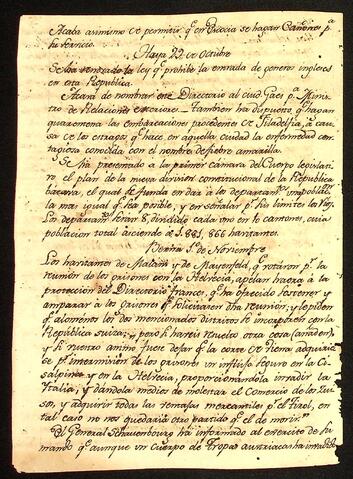 Acaba asimismo de permitir qe. en Escocia se hagan Cañones pa.
su servicio.
Haya 22 de Octubre
Se ha renovado la ley qe. prohibe la entrada de generos ingleses
en esta Republica.
Acava de nombrar este Directorio al ciud. por Ministro
de Relaciones exteriores. Tambien ha dispuesto qe. hagan
quarentena las embarcaciones procedentes de Filadelfia, à cau
sa de los estragos qe. hace en aquella ciudad la enfermedad con
tagiosa conocida con el nombre de fiebre amarilla.
Se ha presentado a la primer cámara del Cuerpo legislati
vo, el plan de la nueva division constitucional de la Republica
batava, el qual se funda en dar à los departamtos. una poblacn.
la mas igual qe. sea posible, y en señalar pr. sus limites los
Los departamtos. serán 8, dividido cada uno en 10 cantones, cuia
poblacion total asciende à 1.881.866 havitantes.
Berna 1º de Noviembre
Los havitantes de Malans y de Mayenfeld, qe. votáron pr. la
reunion de los grisones con la Helvecia, apelan haora à la
proteccion del Directorio frances, qe. ha ofrecido sostener y
amparar à los Grisones qe. solicitaren dha reunion; y le piden
qe. al menos los dos mencionados distritos se incorporen con la
República suiza; pero si haveis resuelto otra cosa (añaden)
y si vuestro animo fuese dexar qe. la corte de Viena adquiriese
se pr. intermision de los grisones un influxo seguro en la Cis-
alpina y en la Helvecia, proporcionandola invadir la
Italia, y dándola medios de molestar el Comercio de los Sui
sos, y adquirir todas las ventajas mercantiles pr. el Tirol, en
tal caso no nos quedaría otro partido qe. el de morir."
El General Schauenbourg ha informado al exercito de su
mando qe. aunque un Cuerpo de Tropas austriacas ha invadido